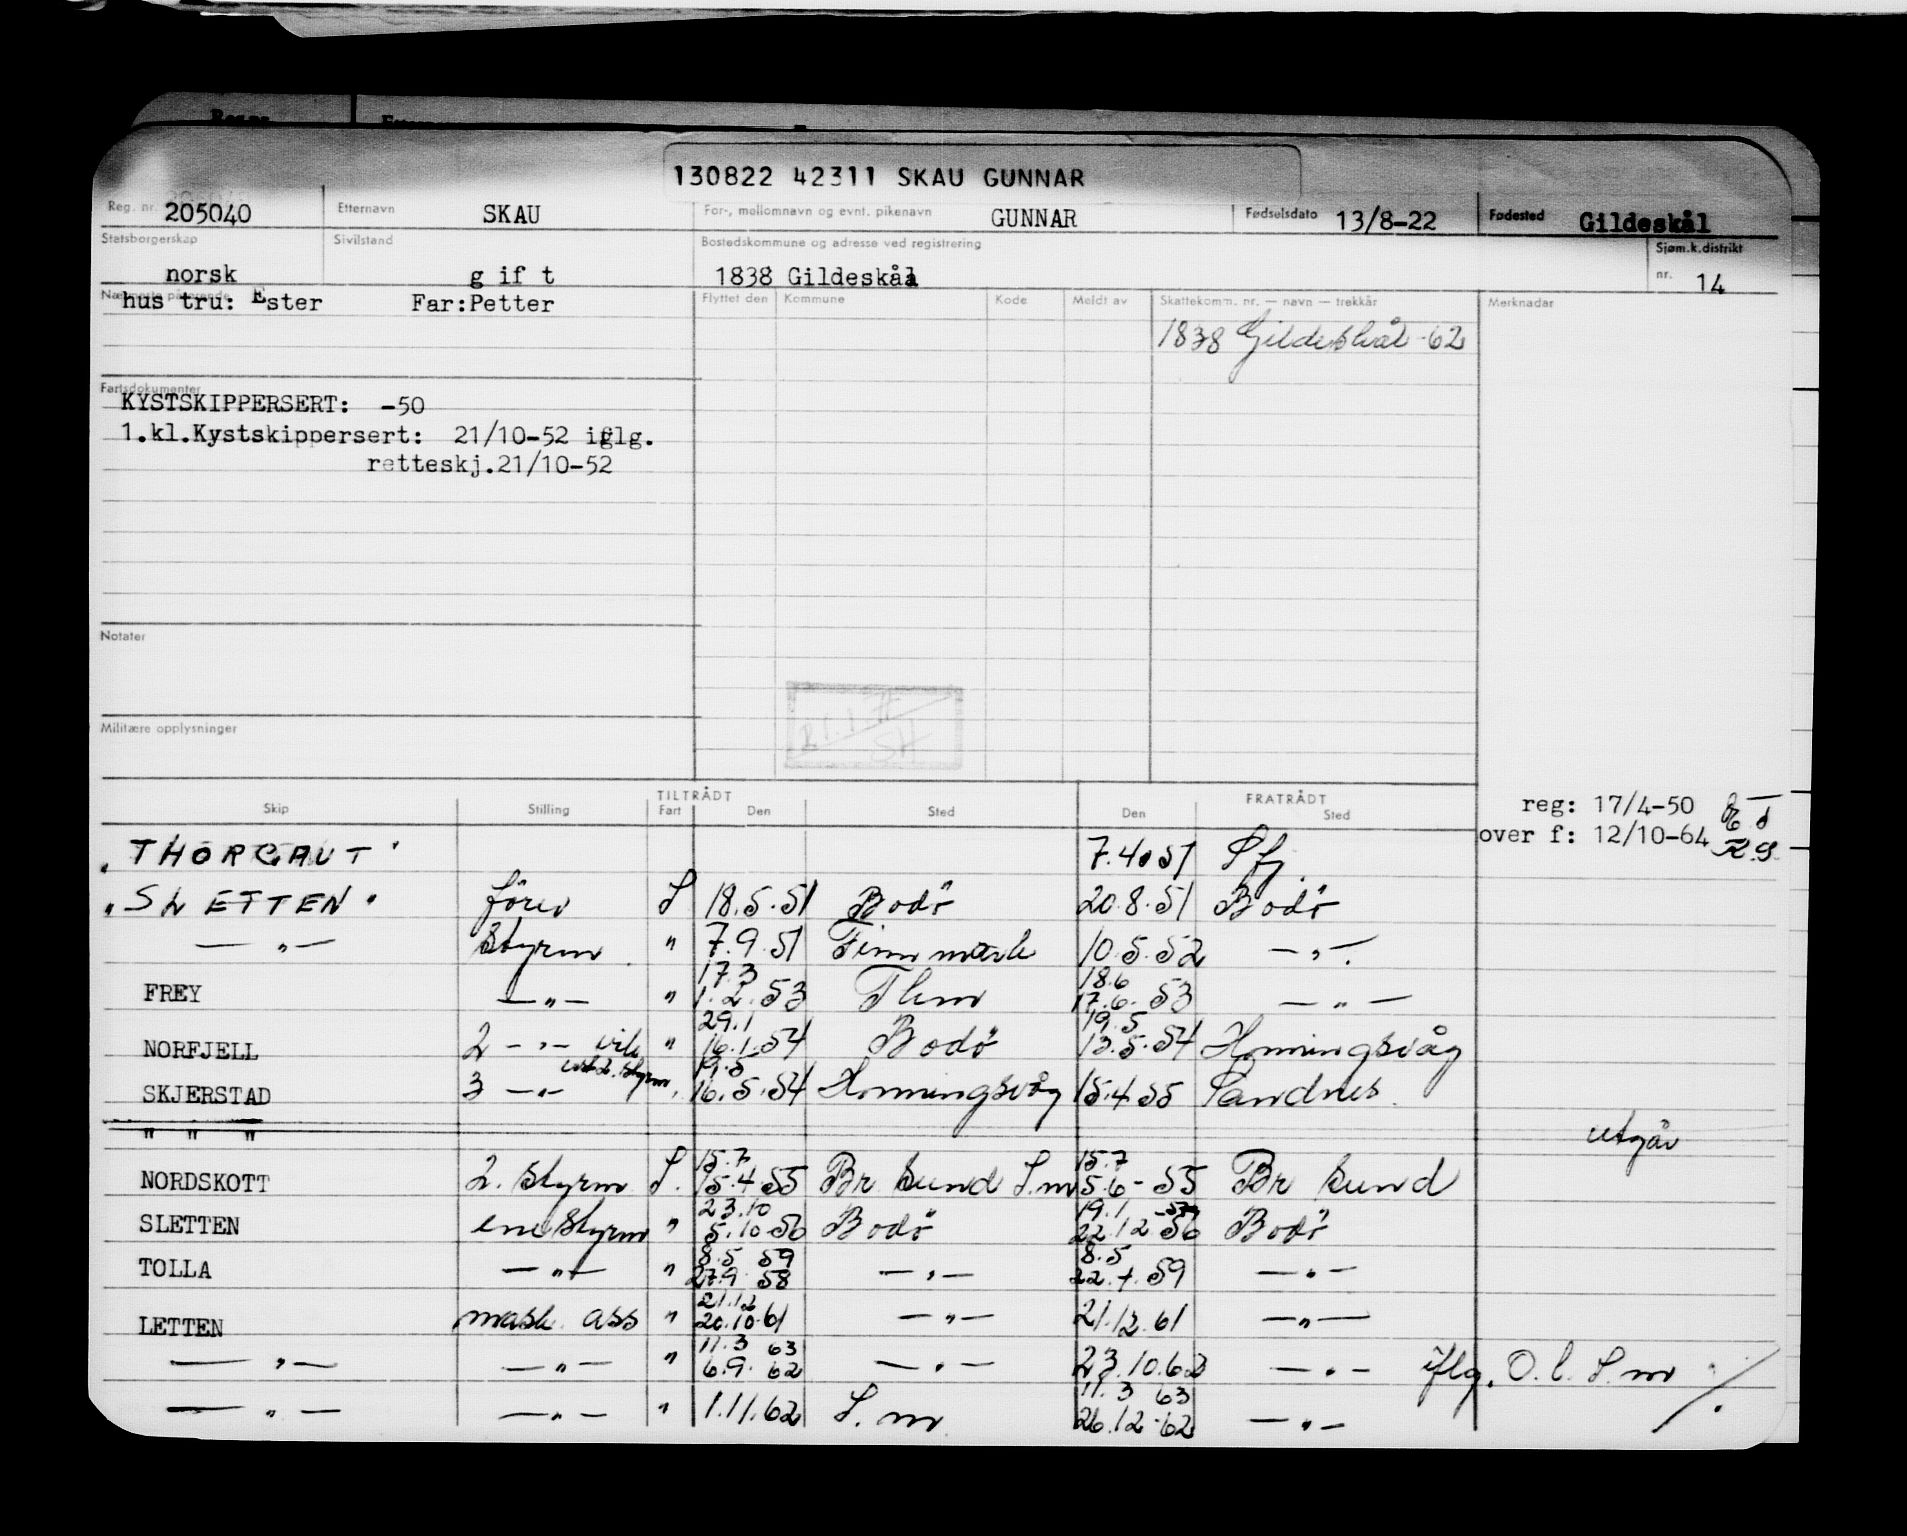 130822 42311 SKAU GUNNAR
Reg. nr. 205040 Etternavn SKAU For-, mellomnavn og evnt. pikenavn GUNNAR Fødselsdato 13/8-22 Fødested Gildeskål
Statsborgerskap norsk Sivilstand g if t Bostedskommune og adresse ved registrering 1838 Gildeskål Sjøm.k.distrikt nr. 14
Nærmeste pårørende hus tru: Ester Far:Petter
Flyttet den Kommune Kode Meldt av Skattekomm. nr. — navn — trekkår Merknader
1838 Gildeskål -62
Fartsdokumenter
KYSTSKIPPERSERT: -50
1.kl.Kystskippersert: 21/10-52 iflg.
retteskj.21/10-52
Notater
Militære opplysninger
TILTRÅDT FRATRÅDT
Skip Stilling Fart Den Sted Den Sted
reg: 17/4-50
over f: 12/10-64 K.S.
"THORGAUT" 7.4.51 Sfj.
"SLETTEN" förer S 18.5.51 Bodö 20.8.51 Bodö
— " — Styrm. " 7.9.51 Finnmark 10.5.52 — " —
17.3 18.6
FREY — " — " 1.2.53 Thm 17.6.53 — " —
29.1 19.5
NORFJELL 2 — " — vik " 16.1.54 Bodö 13.5.54 Honningsvåg
19.5
SKJERSTAD 3 — " — " 16.5.54 Honningsvåg 15.4.55 Sandnes
" " " utgår
15.7 15.7
NORDSKOTT 2. Styrm S. 15.4.55 Br sund S.m 5.6-55 Br sund
23.10 19.1 -57
SLETTEN ene Styrm " 5.10.56 Bodö 22.12.56 Bodö
8.5 59 8.5
TOLLA — " — " 27.9 58 — " — 22.4.59 — " —
21.12
LETTEN mask. ass " 20.10.61 — " — 21.12.61 — " —
11.3 63
— " — — " — " 6.9.62 — " — 23.10.62 — " — iflg. O.l. S.m
11.3 63
— " — — " — " 1.11.62 S.m 26.12-62 — " —